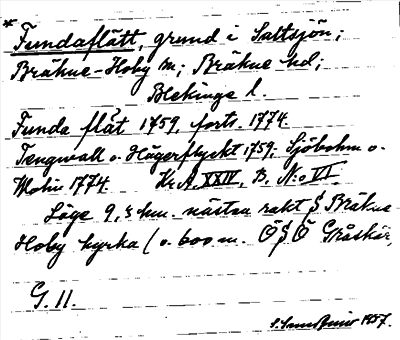 * Fundaflått, grund i Saltsjön;
Bräkne-Hoby sn; Bräkne hd;
Blekinge l.
Funda flåt 1759, forts. 1774
Tengwall o. Hägerflyckt 1759. Sjöbohm o.
Molin 1774. Kr.A. XXIV, B, N:o VI
Läge 9,5 km. nästan rakt S Bräkne
Hoby kyrka (o. 600 m. ÖSÖ Gråskär,
G. 11.
1957.